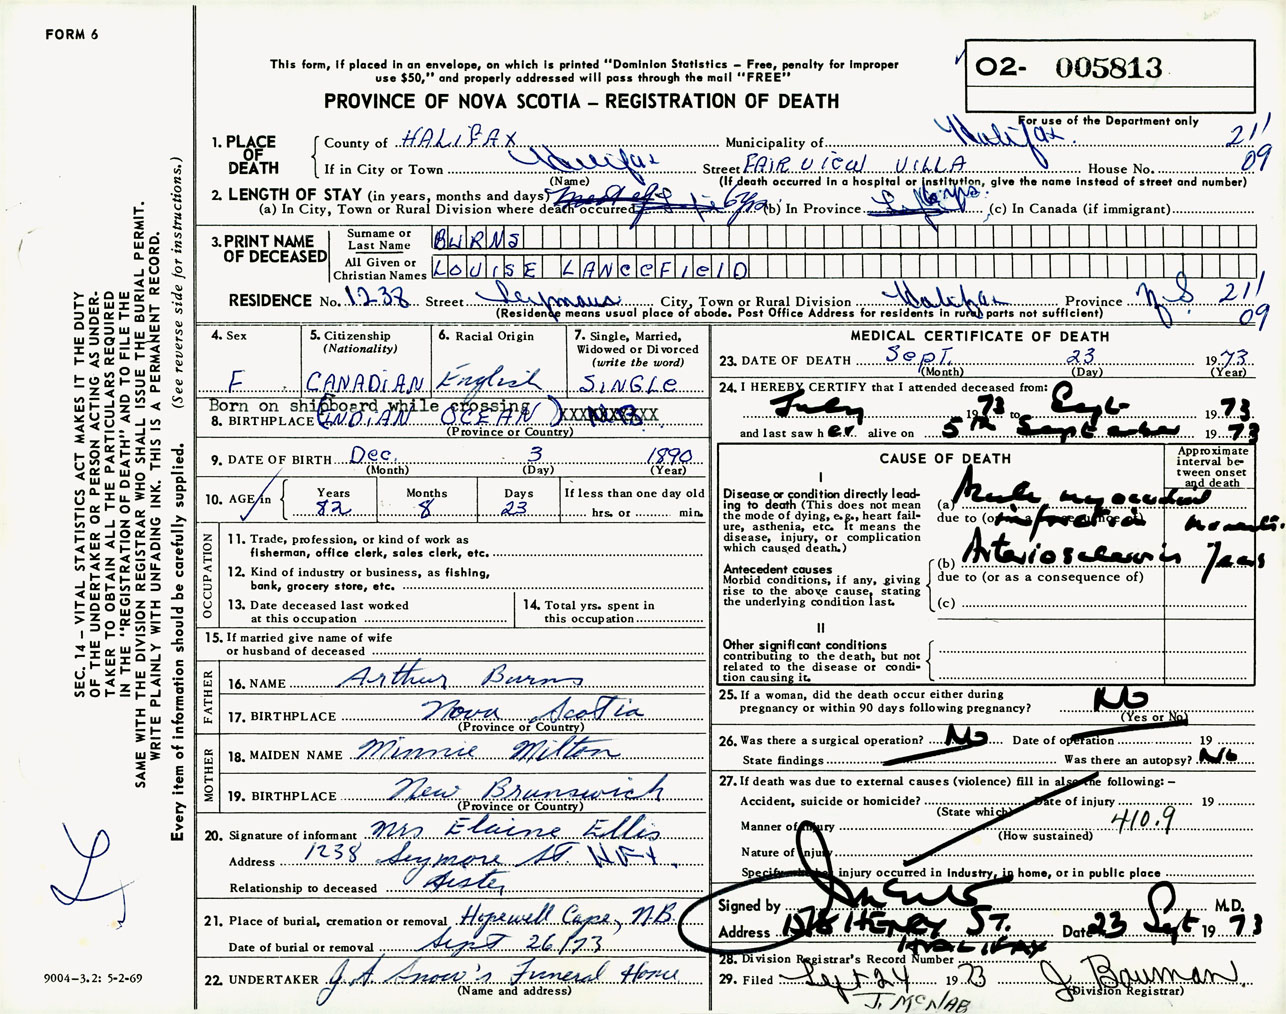 FORM 6
This form, if placed in an envelope, on which is printed "Dominion Statistics – Free, penalty for improper
use $50," and properly addressed will pass through the mail "FREE"
PROVINCE OF NOVA SCOTIA – REGISTRATION OF DEATH
02- 005813
For use of the Department only
1. PLACE OF DEATH
County of HALIFAX Municipality of Halifax 211
If in City or Town Halifax Street FAIRVIEW VILLA House No. 09
(Name) (If death occurred in a hospital or institution, give the name instead of street and number)
2. LENGTH OF STAY (in years, months and days)
(a) In City, Town or Rural Division where death occurred 6 yrs (b) In Province 16 yrs. (c) In Canada (if immigrant)
3. PRINT NAME OF DECEASED
Surname or Last Name BURNS
All Given or Christian Names LOUISE LANCEFIELD
RESIDENCE No. 1238 Street Seymour City, Town or Rural Division Halifax Province N.S. 211
(Residence means usual place of abode. Post Office Address for residents in rural parts not sufficient) 09
4. Sex F
5. Citizenship (Nationality) CANADIAN
6. Racial Origin English
7. Single, Married, Widowed or Divorced (write the word) SINGLE
Born on shipboard while crossing
8. BIRTHPLACE (INDIAN OCEAN) XXXXXXXXXX N.B.
(Province or Country)
9. DATE OF BIRTH Dec. 3 1890
(Month) (Day) (Year)
10. AGE in Years 82 Months 8 Days 23 If less than one day old hrs. or min.
OCCUPATION
11. Trade, profession, or kind of work as
fisherman, office clerk, sales clerk, etc.
12. Kind of industry or business, as fishing,
bank, grocery store, etc.
13. Date deceased last worked
at this occupation
14. Total yrs. spent in
this occupation
15. If married give name of wife
or husband of deceased
FATHER
16. NAME Arthur Burns
17. BIRTHPLACE Nova Scotia
(Province or Country)
MOTHER
18. MAIDEN NAME Minnie Milton
19. BIRTHPLACE New Brunswick
(Province or Country)
20. Signature of informant Mrs Elaine Ellis
Address 1238 Seymore St. Hfx.
Relationship to deceased Sister
21. Place of burial, cremation or removal Hopewell Cape, N.B.
Date of burial or removal Sept 26/73
22. UNDERTAKER J.A. Snow's Funeral Home
(Name and address)
MEDICAL CERTIFICATE OF DEATH
23. DATE OF DEATH Sept. 23 1973
(Month) (Day) (Year)
24. I HEREBY CERTIFY that I attended deceased from:
July 1973 to Sept 1973
and last saw her alive on 5th September 1973
CAUSE OF DEATH
Approximate interval between onset and death
I
Disease or condition directly lead-
ing to death (This does not mean
the mode of dying, e.g., heart fail-
ure, asthenia, etc. It means the
disease, injury, or complication
which caused death.)
(a) Acute myocardial
due to (or as a consequence of) infarction moments.
(b) Arteriosclerosis Years
due to (or as a consequence of)
(c)
Antecedent causes
Morbid conditions, if any, giving
rise to the above cause, stating
the underlying condition last.
II
Other significant conditions
contributing to the death, but not
related to the disease or condi-
tion causing it.
25. If a woman, did the death occur either during
pregnancy or within 90 days following pregnancy? No
(Yes or No)
26. Was there a surgical operation? No Date of operation 19
State findings Was there an autopsy? No
27. If death was due to external causes (violence) fill in also the following: –
Accident, suicide or homicide? Date of injury 19
(State which)
Manner of injury 410.9
(How sustained)
Nature of injury
Specify whether injury occurred in industry, in home, or in public place
Signed by M.D.
Address HENRY ST. HALIFAX Date 23 Sept 1973
28. Division Registrar's Record Number
29. Filed Sept 24 1973 J. Bauman
(Division Registrar)
J. McNAB
SEC. 14 – VITAL STATISTICS ACT MAKES IT THE DUTY
OF THE UNDERTAKER OR PERSON ACTING AS UNDER-
TAKER TO OBTAIN ALL THE PARTICULARS REQUIRED
IN THE "REGISTRATION OF DEATH" AND TO FILE THE
SAME WITH THE DIVISION REGISTRAR WHO SHALL ISSUE THE BURIAL PERMIT.
WRITE PLAINLY WITH UNFADING INK. THIS IS A PERMANENT RECORD.
Every item of information should be carefully supplied. (See reverse side for instructions.)
9004–3.2: 5-2-69